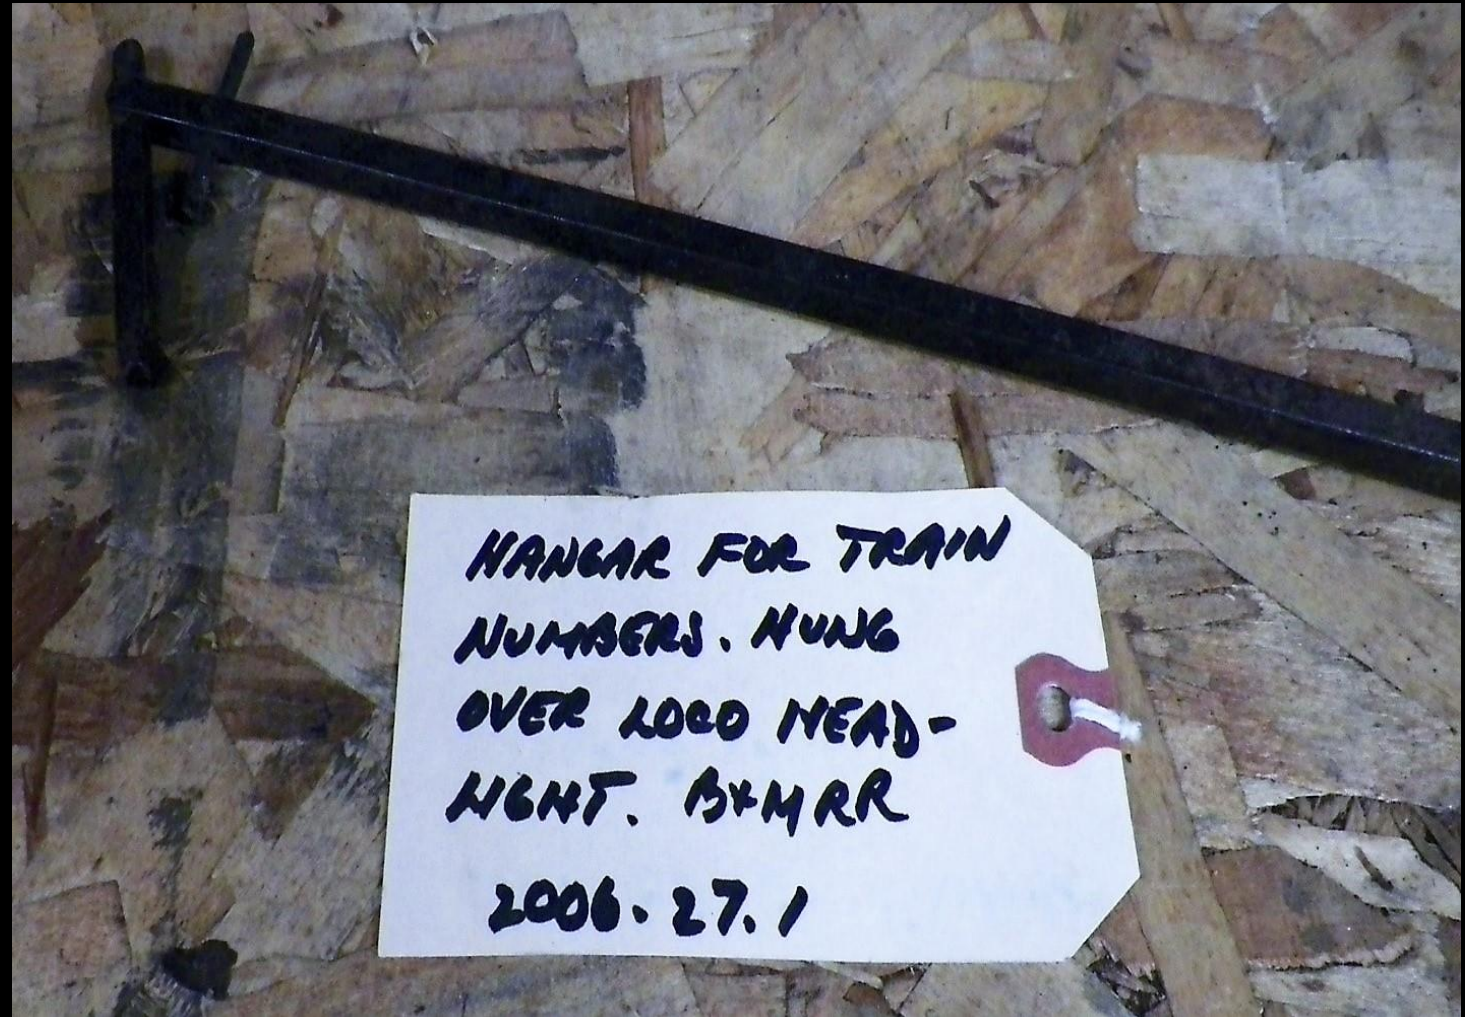 HANGAR FOR TRAIN
NUMBERS. HUNG
OVER LOCO HEAD-
LIGHT. B+MRR
2006.27.1